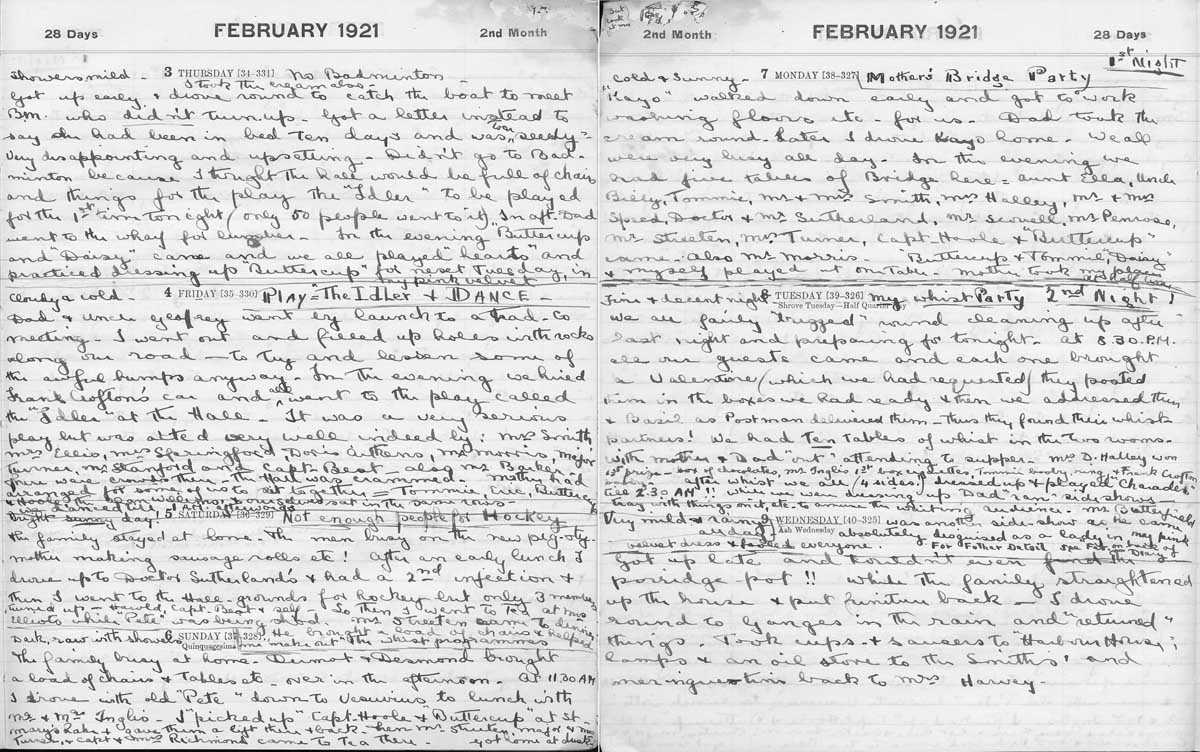 28 Days FEBRUARY 1921 2nd Month
Showers mild - 3 THURSDAY [34-331] No Badminton -
I took the cream also -
Got up early & drove round to catch the boat to meet
B.M. who didn't turn up - Got a letter instead to
say she had been in bed ten days and was too seedy -
Very disappointing and upsetting - Didn't go to Bad-
minton because I thought the hall would be full of chairs
and things for the play the "Idler" to be played
for the 1st time tonight (only 50 people went to it). In aft. Dad
went to the wharf for lumber - In the evening Buttercup
and "Daisy" came and we all played "hearts" and
practiced dressing up "Buttercup" for next Tuesday, in
my pink velvet
Cloudy & cold - 4 FRIDAY [35-330] PLAY "The Idler & DANCE -
Dad & Uncle Geoffrey went by launch to a
meeting - I went out and filled up holes with rocks
along our road - to try and lessen some of
the awful bumps anyway - In the evening we hired
Frank Crofton's car and all went to the play called
the "Idler" at the Hall - It was a very serious
play but was acted very well indeed by: Mrs Smith
Mrs Ellis, Mrs Springford - Doris Mrs Morris, Major
Turner, Mr Stanford and Capt. Best - also Mr Barker -
There were crowds there - The Hall was crammed. Mother had
arranged for some of us to sit together = Tommie, Cue, Buttercup
& self sat in the same row
We danced till 1 AM afterwards
Bright sunny day! 5 SATURDAY [36-329] Not enough people for Hockey
The family stayed at home. The men busy on the new pig-sty -
Mother making sausage rolls etc! After an early lunch I
drove up to Doctor Sutherland's & had a 2nd infection &
then I went to the Hall grounds for hockey but only 3 members
turned up - Harold, Capt. Best & self - So then I went to Tea at Mrs
Elliots while "Pete" was being shod. Mr Streeten came to dinner
He brought a load of chairs & helped
me make out the whist programmes
Dark, raw with showers 6 SUNDAY [37-328]
Quinquagesima
The family busy at home. Dermot & Desmond brought
a load of chairs & tables etc over in the afternoon. At 11.30 AM
I drove with old "Pete" down to Vesuvius to lunch with
Mr & Mrs Inglis - I "picked up" Capt. Hoole & "Buttercup" at St
Mary's Lake & gave them a lift there & back - then Mr Streeten, Major & Mrs
Turner, & Capt & Mrs Richmond came to Tea there - Got home at dusk.
2nd Month FEBRUARY 1921 28 Days
1st Night
Cold & Sunny - 7 MONDAY [38-327] Mother's Bridge Party
"Kayo" walked down early and got to work
washing floors etc - for us - Dad took the
cream round - Later I drove Kayo home. We all
were very busy all day. In the evening we
had five tables of Bridge here = Aunt Ella, Uncle
Billy, Tommie, Mr & Mrs Smith, Mrs Halley, Mr & Mrs
Speed, Doctor & Mrs Sutherland, Mr Scovell, Mr Penrose,
Mr Streeten, Mrs Turner, Capt. Hoole & "Buttercup"
came - also Mr Morris. Buttercup & Tommie, "Daisy"
& myself played at one table - Mother took my place
at half time
Fine & decent night 8 TUESDAY [39-326] My whist Party 2nd Night!
Shrove Tuesday—Half Quarter Day
We all fairly "buzzed" round cleaning up after
last night and preparing for tonight - at 8.30 P.M.
all our guests came and each one brought
a Valentine (which we had requested) they posted
them in the boxes we had ready & then we addressed them
& Basil as Postman delivered them - thus they found their whist
partners! We had Ten Tables of whist in the two rooms -
with Mother & Dad "out" attending to supper. Mrs D. Halley won
1st prize - box of chocolates, Mr Inglis 1st box cigarettes, Tommie booby, ring, & Frank Crofton
After whist we all (4 sides) dressed up & played "Charades"
till 2.30 AM!! While we were dressing up Dad "ran" side shows -
tray with things on it, etc - to amuse the waiting audience - Mr Butterfield
was another side show as he came
absolutely disguised as a lady in my pink
velvet dress & fooled everyone.
For Further Detail see in back of
Diary
Very mild & raining 9 WEDNESDAY [40-325]
Ash Wednesday
Got up late and couldn't even find the
porridge pot!! While the family straightened
up the house & put furniture back - I drove
round to Ganges in the rain and "returned"
things. Took cups & saucers to "Harbour House;
lamps & an oil stove to the Smiths' and
meringue tins back to Mrs Harvey -